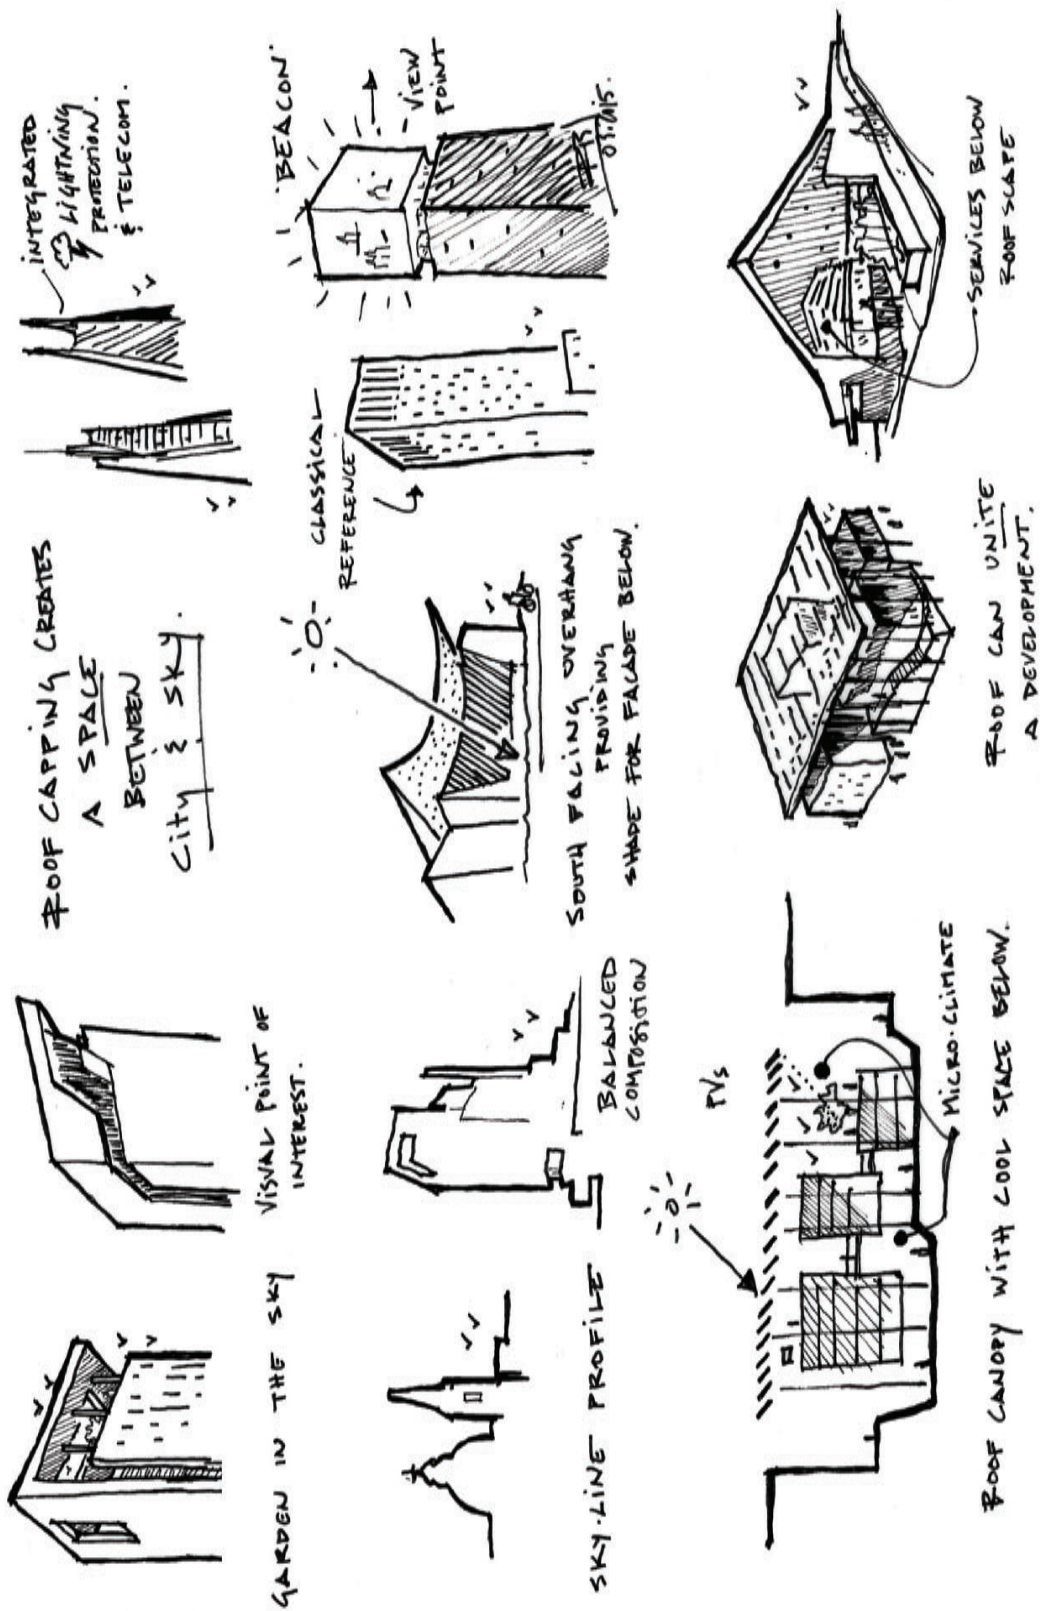 GARDEN IN THE SKY
VISUAL POINT OF
INTEREST.
ROOF CAPPING CREATES
A SPACE
BETWEEN
City & SKY.
INTEGRATED
LIGHTNING
PROTECTION.
& TELECOM.
SKY·LINE PROFILE
BALANCED
COMPOSITION
SOUTH FACING OVERHANG
PROVIDING
SHADE FOR FACADE BELOW.
CLASSICAL
REFERENCE
'BEACON'
VIEW
POINT
PVs
MICRO·CLIMATE
ROOF CANOPY WITH COOL SPACE BELOW.
ROOF CAN UNITE
A DEVELOPMENT.
SERVICES BELOW
ROOFSCAPE